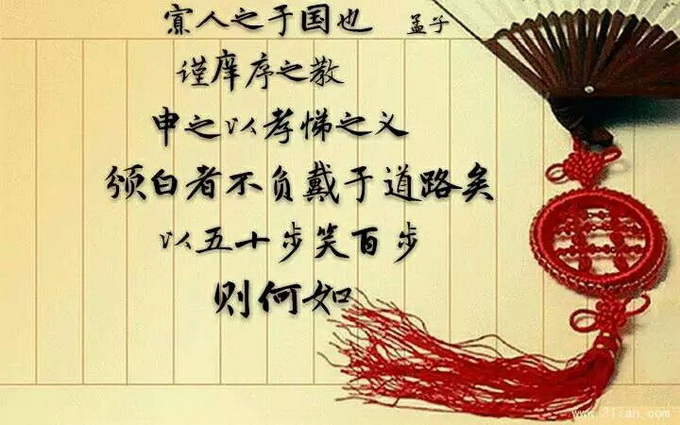 寡人之于国也 孟子
谨庠序之教
申之以孝悌之义
颁白者不负戴于道路矣
以五十步笑百步
则何如